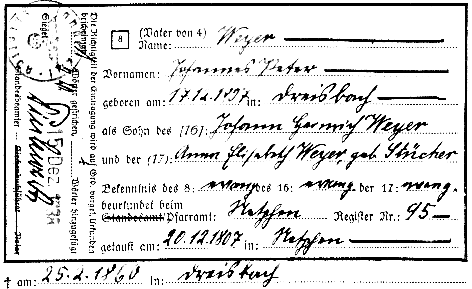 8 (Vater von 4) Name: Weyer
Vornamen: Johannes Peter
geboren am: 17.12.1897 in: Dreisbach
als Sohn des (16): Johann Henrich Weyer
und der (17): Anna Elisabeth Weyer, geb. Stücher
Bekenntnis des 8: evang. des 16: evang. der 17: evang.
beurkundet beim Standesamt Pfarramt: Netphen Register Nr.: 95
getauft am: 20.12.1807 in: Netphen
† am: 25.2.1860 in: Dreisbach
Die Richtigkeit der Eintragung wird auf Grd. vorgel. Urkunden bescheinigt.
Wörter gestrichen.
Wörter hinzugefügt
Siegel
15. Dez.
Standesbeamter